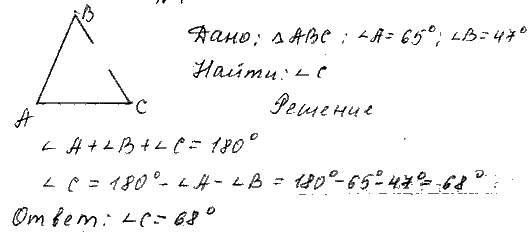 B
Дано: △ABC; ∠A=65°; ∠B=47°
Найти: ∠C
A C
Решение
∠A+∠B+∠C=180°
∠C=180°-∠A-∠B=180°-65°-47°=68°
Ответ: ∠C=68°